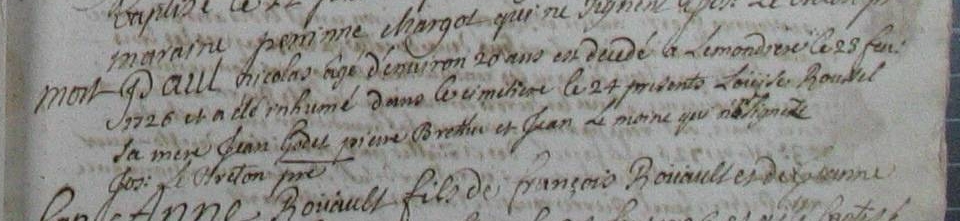 Baptisé le 22
maraine perinne chargot qui ne signent
mort Paul nicolas âgé d'environ 20 ans est decedé a Lemondrere le 23 feu:
1726 et a été inhumé dans le cimetiere le 24 presents Louise Rouxel
sa mere Jean Godet pierre Brethe et Jean Le moine qui ne signent
Jos: Le Breton pre
Anne Rouault fils de françois Rouault et de Jeanne